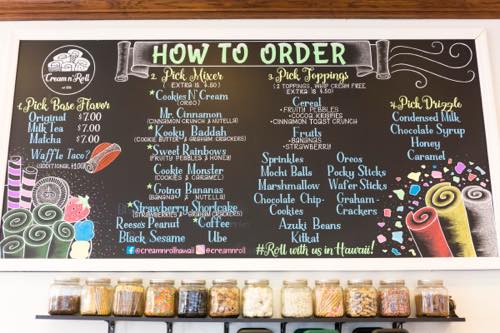 HOW TO ORDER
Cream n' Roll
1. Pick Base Flavor
Original $7.00
Milk Tea $7.00
Matcha $7.00
Waffle Taco?
2. Pick Mixer
(EXTRA IS .50)
*Cookies N' Cream
(OREO)
Mr. Cinnamon
(CINNAMON CRUNCH & NUTELLA)
*Kooky Baddah
(COOKIE BUTTER & GRAHAM CRACKERS)
*Sweet Rainbows
(FRUITY PEBBLES & HONEY)
Cookie Monster
(COOKIES & CARAMEL)
*Going Bananas
(BANANA & NUTELLA)
*Strawberry Shortcake
(STRAWBERRIES & GRAHAM CRACKERS)
Reese's Peanut *Coffee
Black Sesame Ube
@creamnrollhawaii @creamnroll
3. Pick Toppings
(2 TOPPINGS, WHIP CREAM FREE
EXTRA IS .50)
Cereal
-FRUITY PEBBLES
-COCOA KRISPIES
-CINNAMON TOAST CRUNCH
Fruits
-BANANAS
-STRAWBERRY
Sprinkles Oreos
Mochi Balls Pocky Sticks
Marshmallow Wafer Sticks
Chocolate Chip- Graham-
Cookies Crackers
Azuki Beans
Kitkat
#Roll with us in Hawaii!
4. Pick Drizzle
Condensed Milk
Chocolate Syrup
Honey
Caramel